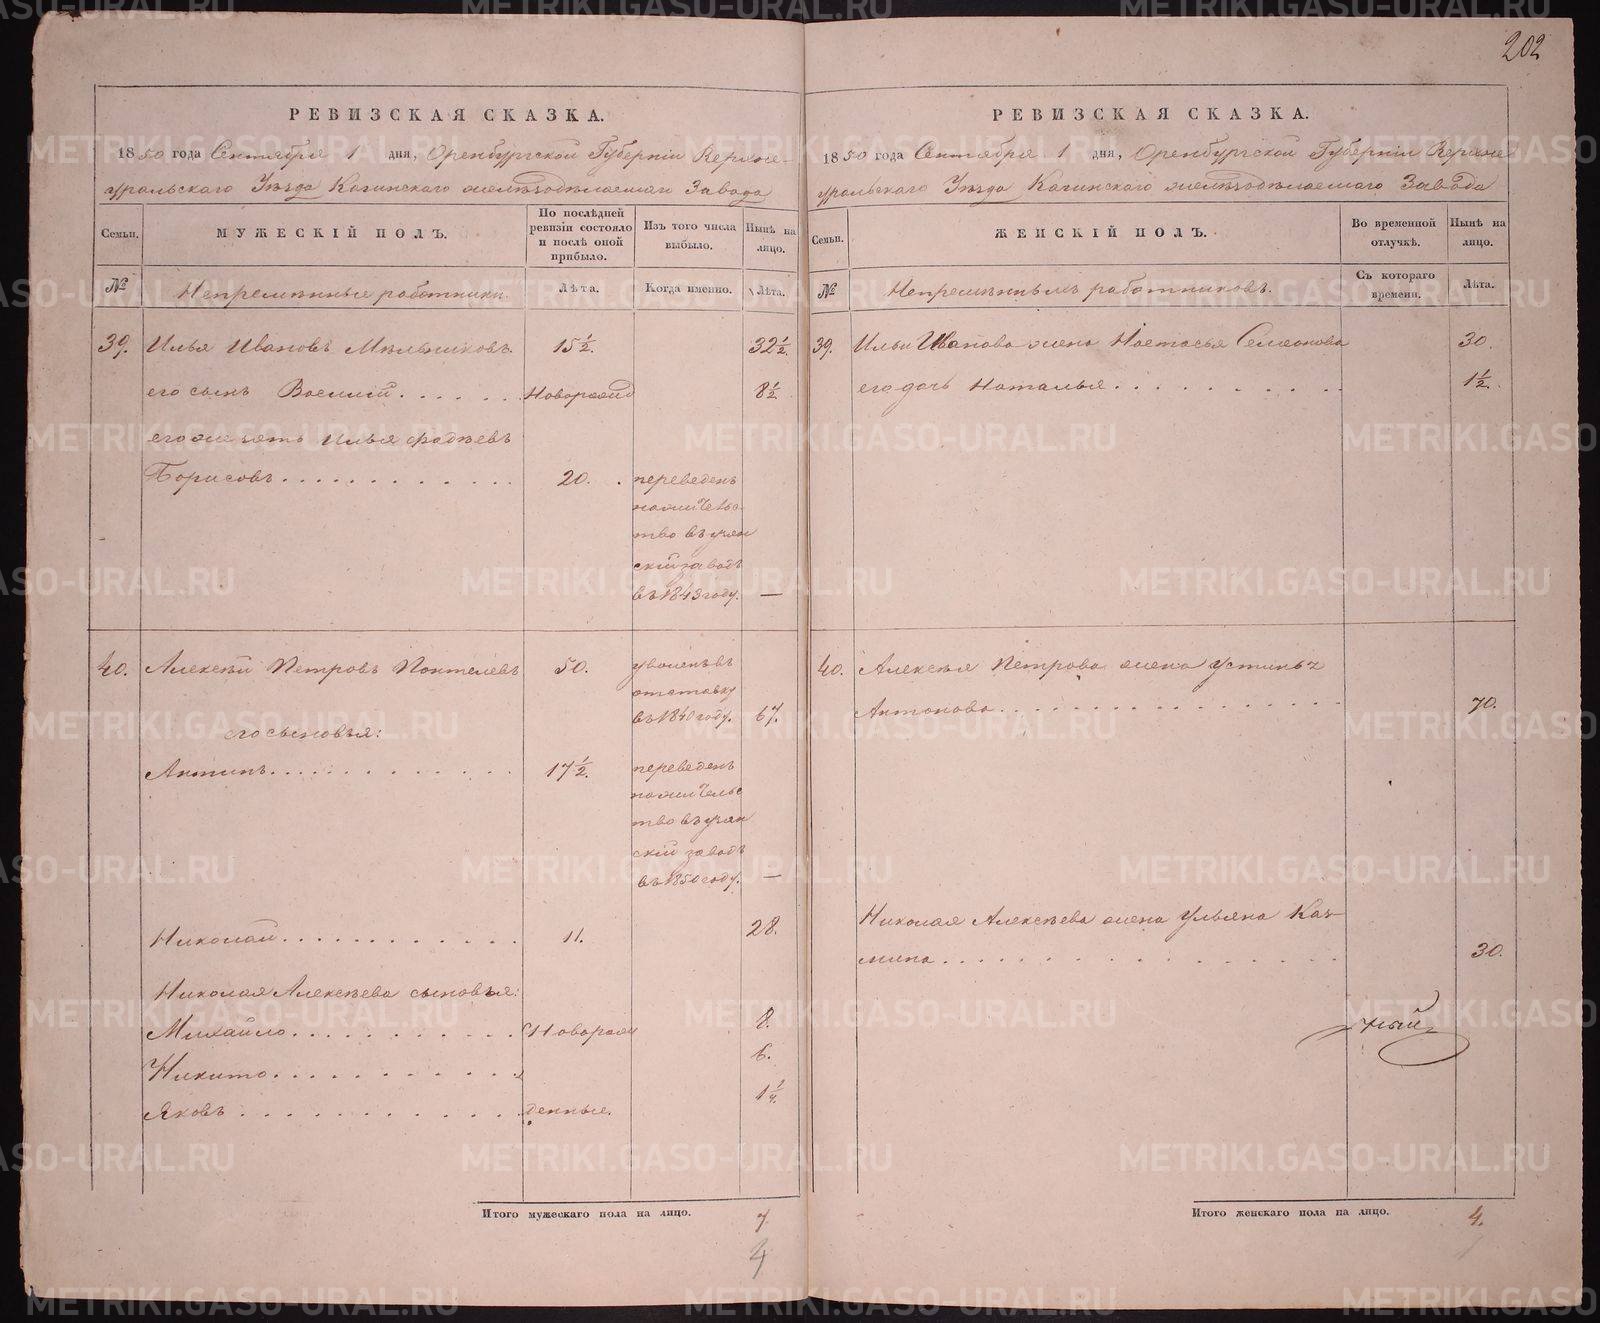 202
РЕВИЗСКАЯ СКАЗКА.
1850 года Сентября 1 дня, Оренбургской Губерніи Верхне-
уральскаго Уѣзда Кагинскаго желѣзодѣлаемаго Завода
Семьи.
МУЖЕСКІЙ ПОЛЪ.
По послѣдней ревизіи состояло и послѣ оной прибыло.
Изъ того числа выбыло.
Нынѣ на лицо.
№
Непремѣнные работники.
Лѣта.
Когда именно.
Лѣта.
39. Илья Ивановъ Мѣльниковъ. 15½. 32½.
его сынъ Василій . . . . . . Новорожд 8½.
его же зять Илья Фадѣевъ
Борисовъ . . . . . . . . . . . 20. переведенъ
на житѣльс
тво въ узян
скій заводъ
въ 1843 году. —
40. Алексѣй Петровъ Понтелевъ 50. уволенъ въ
отставку
въ 1840 году. 67.
его сыновья:
Антипъ . . . . . . . . . . . 17½. переведенъ
на жительс
тво въ узян
скій заводъ
въ 1850 году. —
Николай . . . . . . . . . . . 11. 28.
Николая Алексѣева сыновья:
Михайло . . . . . . . . . . . Новорож 8.
Никита . . . . . . . . . . . 6.
Яковъ . . . . . . . . . . . . денные. 1¼.
Итого мужескаго пола на лицо. 7.
4
РЕВИЗСКАЯ СКАЗКА.
1850 года Сентября 1 дня, Оренбургской Губерніи Верхне-
уральскаго Уѣзда Кагинскаго желѣзодѣлаемаго Завода
Семьи.
ЖЕНСКІЙ ПОЛЪ.
Во временной отлучкѣ.
Нынѣ на лицо.
№
Непремѣнныхъ работниковъ.
Съ котораго времени.
Лѣта.
39. Ильи Иванова жена Настасья Семионова 30.
его дочь Наталья . . . . . . . . . . 1½.
40. Алексѣя Петрова жена Устинья
Антонова . . . . . . . . . . . . . . . 70.
Николая Алексѣева жена Ульяна Каз-
мина . . . . . . . . . . . . . . . . 30.
ный
Итого женскаго пола на лицо. 4.
METRIKI.GASO-URAL.RU